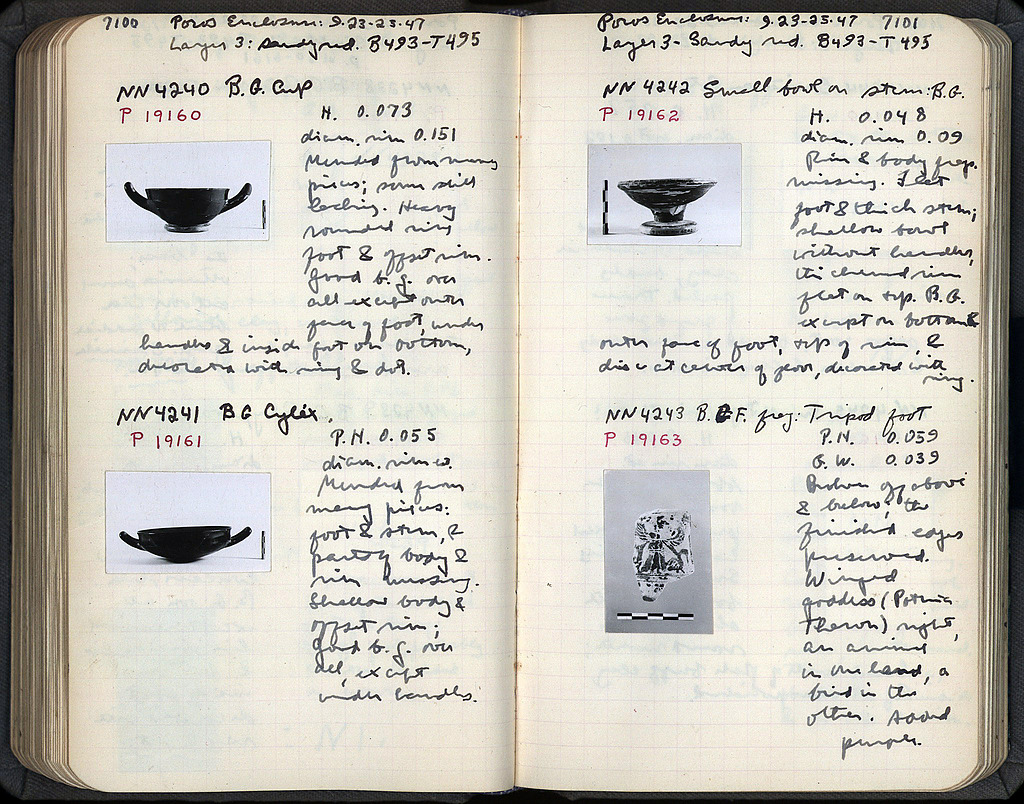 7100 Poros Enclosure: 9.23-25.47
Layer 3: Sandy red. B493-T495
NN4240 B.G. Cup
P 19160
H. 0.073
diam. rim 0.151
Mended from many
pieces; some still
lacking. Heavy
rounded ring
foot & offset rim.
Good b.g. over
all except outer
face of foot, under
handles & inside foot on bottom,
decorated with ring & dot.
NN4241 BG Cylix.
P 19161
P.H. 0.055
diam. rim
Mended from
many pieces:
foot & stem, &
part of body &
rim missing.
Shallow body &
offset rim;
Good b.g. over
all, except
under handles.
Poros Enclosure: 9.23-25.47 7101
Layer 3- Sandy red. B493-T495
NN 4242 Small bowl on stem: B.G.
P 19162
H. 0.048
diam. rim 0.09
Rim & body frag.
missing. Flat
foot & thick stem;
shallow bowl
without handles,
thickened rim
flat on top. B.G.
except on bottom &
outer face of foot, top of rim, &
disc at center of floor, decorated with
ring.
NN4243 B.F. frag: Tripod foot
P 19163
P.H. 0.059
G.W. 0.039
Broken off above
& below; the
finished edges
preserved.
Winged
goddess (Potnia
Theron) right,
an animal
in one hand, a
bird in the
other. Added
purple.